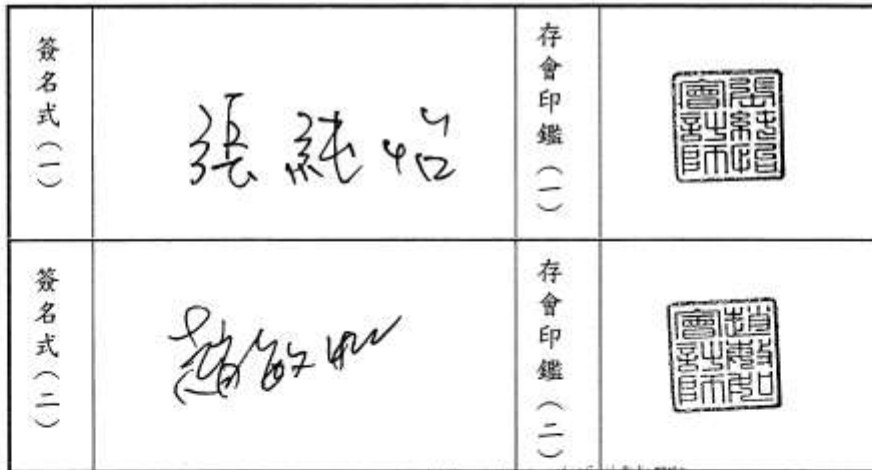 簽名式(一)
張純怡
存會印鑑(一)
張純怡會計師
簽名式(二)
趙敏如
存會印鑑(二)
趙敏如會計師